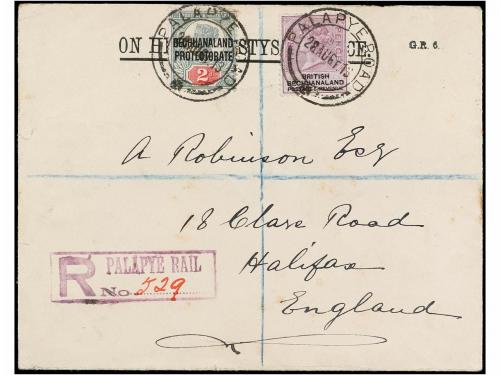 ON HIS MAJESTY'S SERVICE.
G.R. 6.
PALAPYE ROAD
BECHUANALAND
PROTECTORATE
2
PALAPYE ROAD
28 AUG
BRITISH
BECHUANALAND
A Robinson Esq
18 Clare Road
Halifax
England
R
PALAPYE RAIL
No. 529